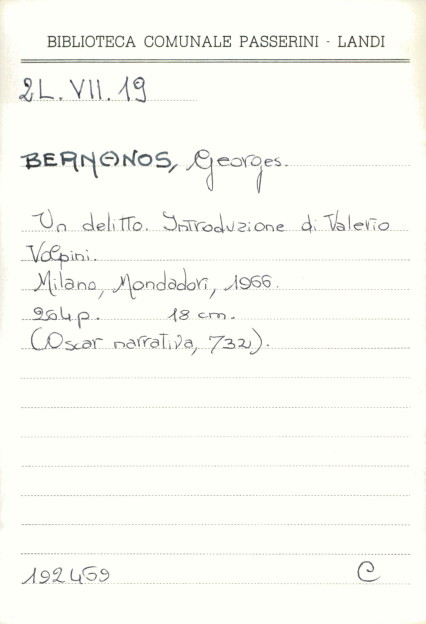 BIBLIOTECA COMUNALE PASSERINI - LANDI
2L. VII. 19
BERNANOS, Georges.
Un delitto. Introduzione di Valerio
Volpini.
Milano, Mondadori, 1966.
204 p. 18 cm.
(Oscar narrativa, 732).
192469
C